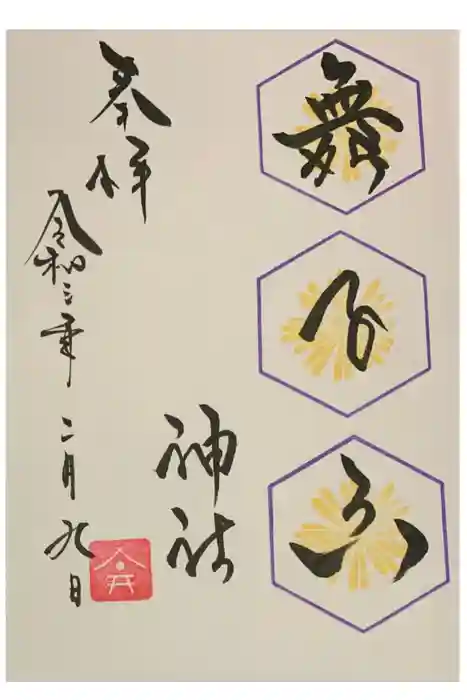 舞
子
六
神社
奉拝
令和三年 二月九日